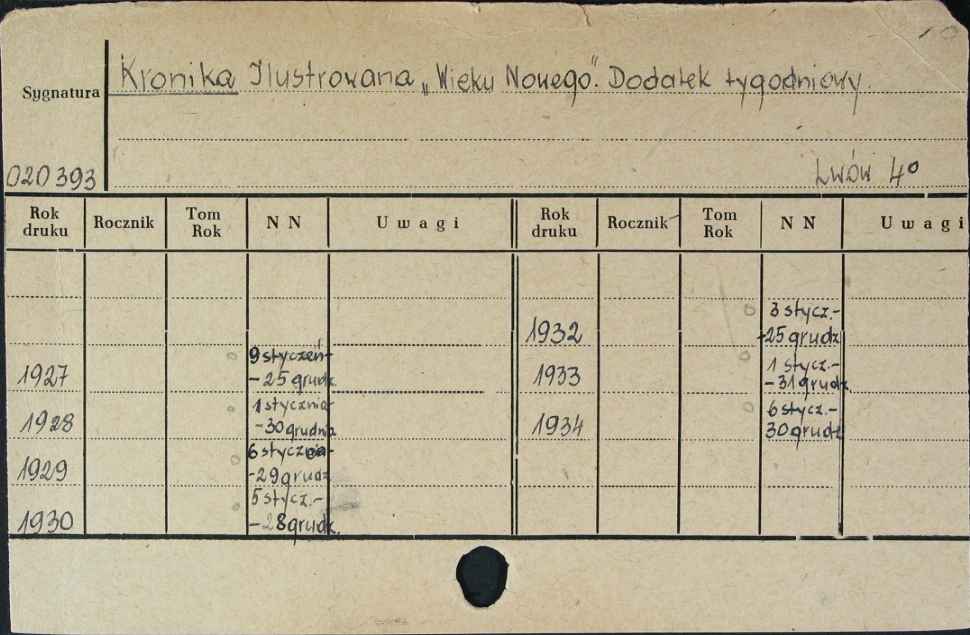 Kronika Ilustrowana „Wieku Nowego". Dodatek tygodniowy.
Sygnatura
020393
Lwów 4°
Rok druku Rocznik Tom Rok NN Uwagi Rok druku Rocznik Tom Rok NN Uwagi
1927 9 styczeń-
-25 grudz.
1928 1 stycznia-
-30 grudnia
1929 6 stycznia-
-29 grudz
1930 5 stycz.-
-28 grudz.
1932 3 stycz.-
-25 grudz
1933 1 stycz.-
-31 grudz
1934 6 stycz.-
30 grudz